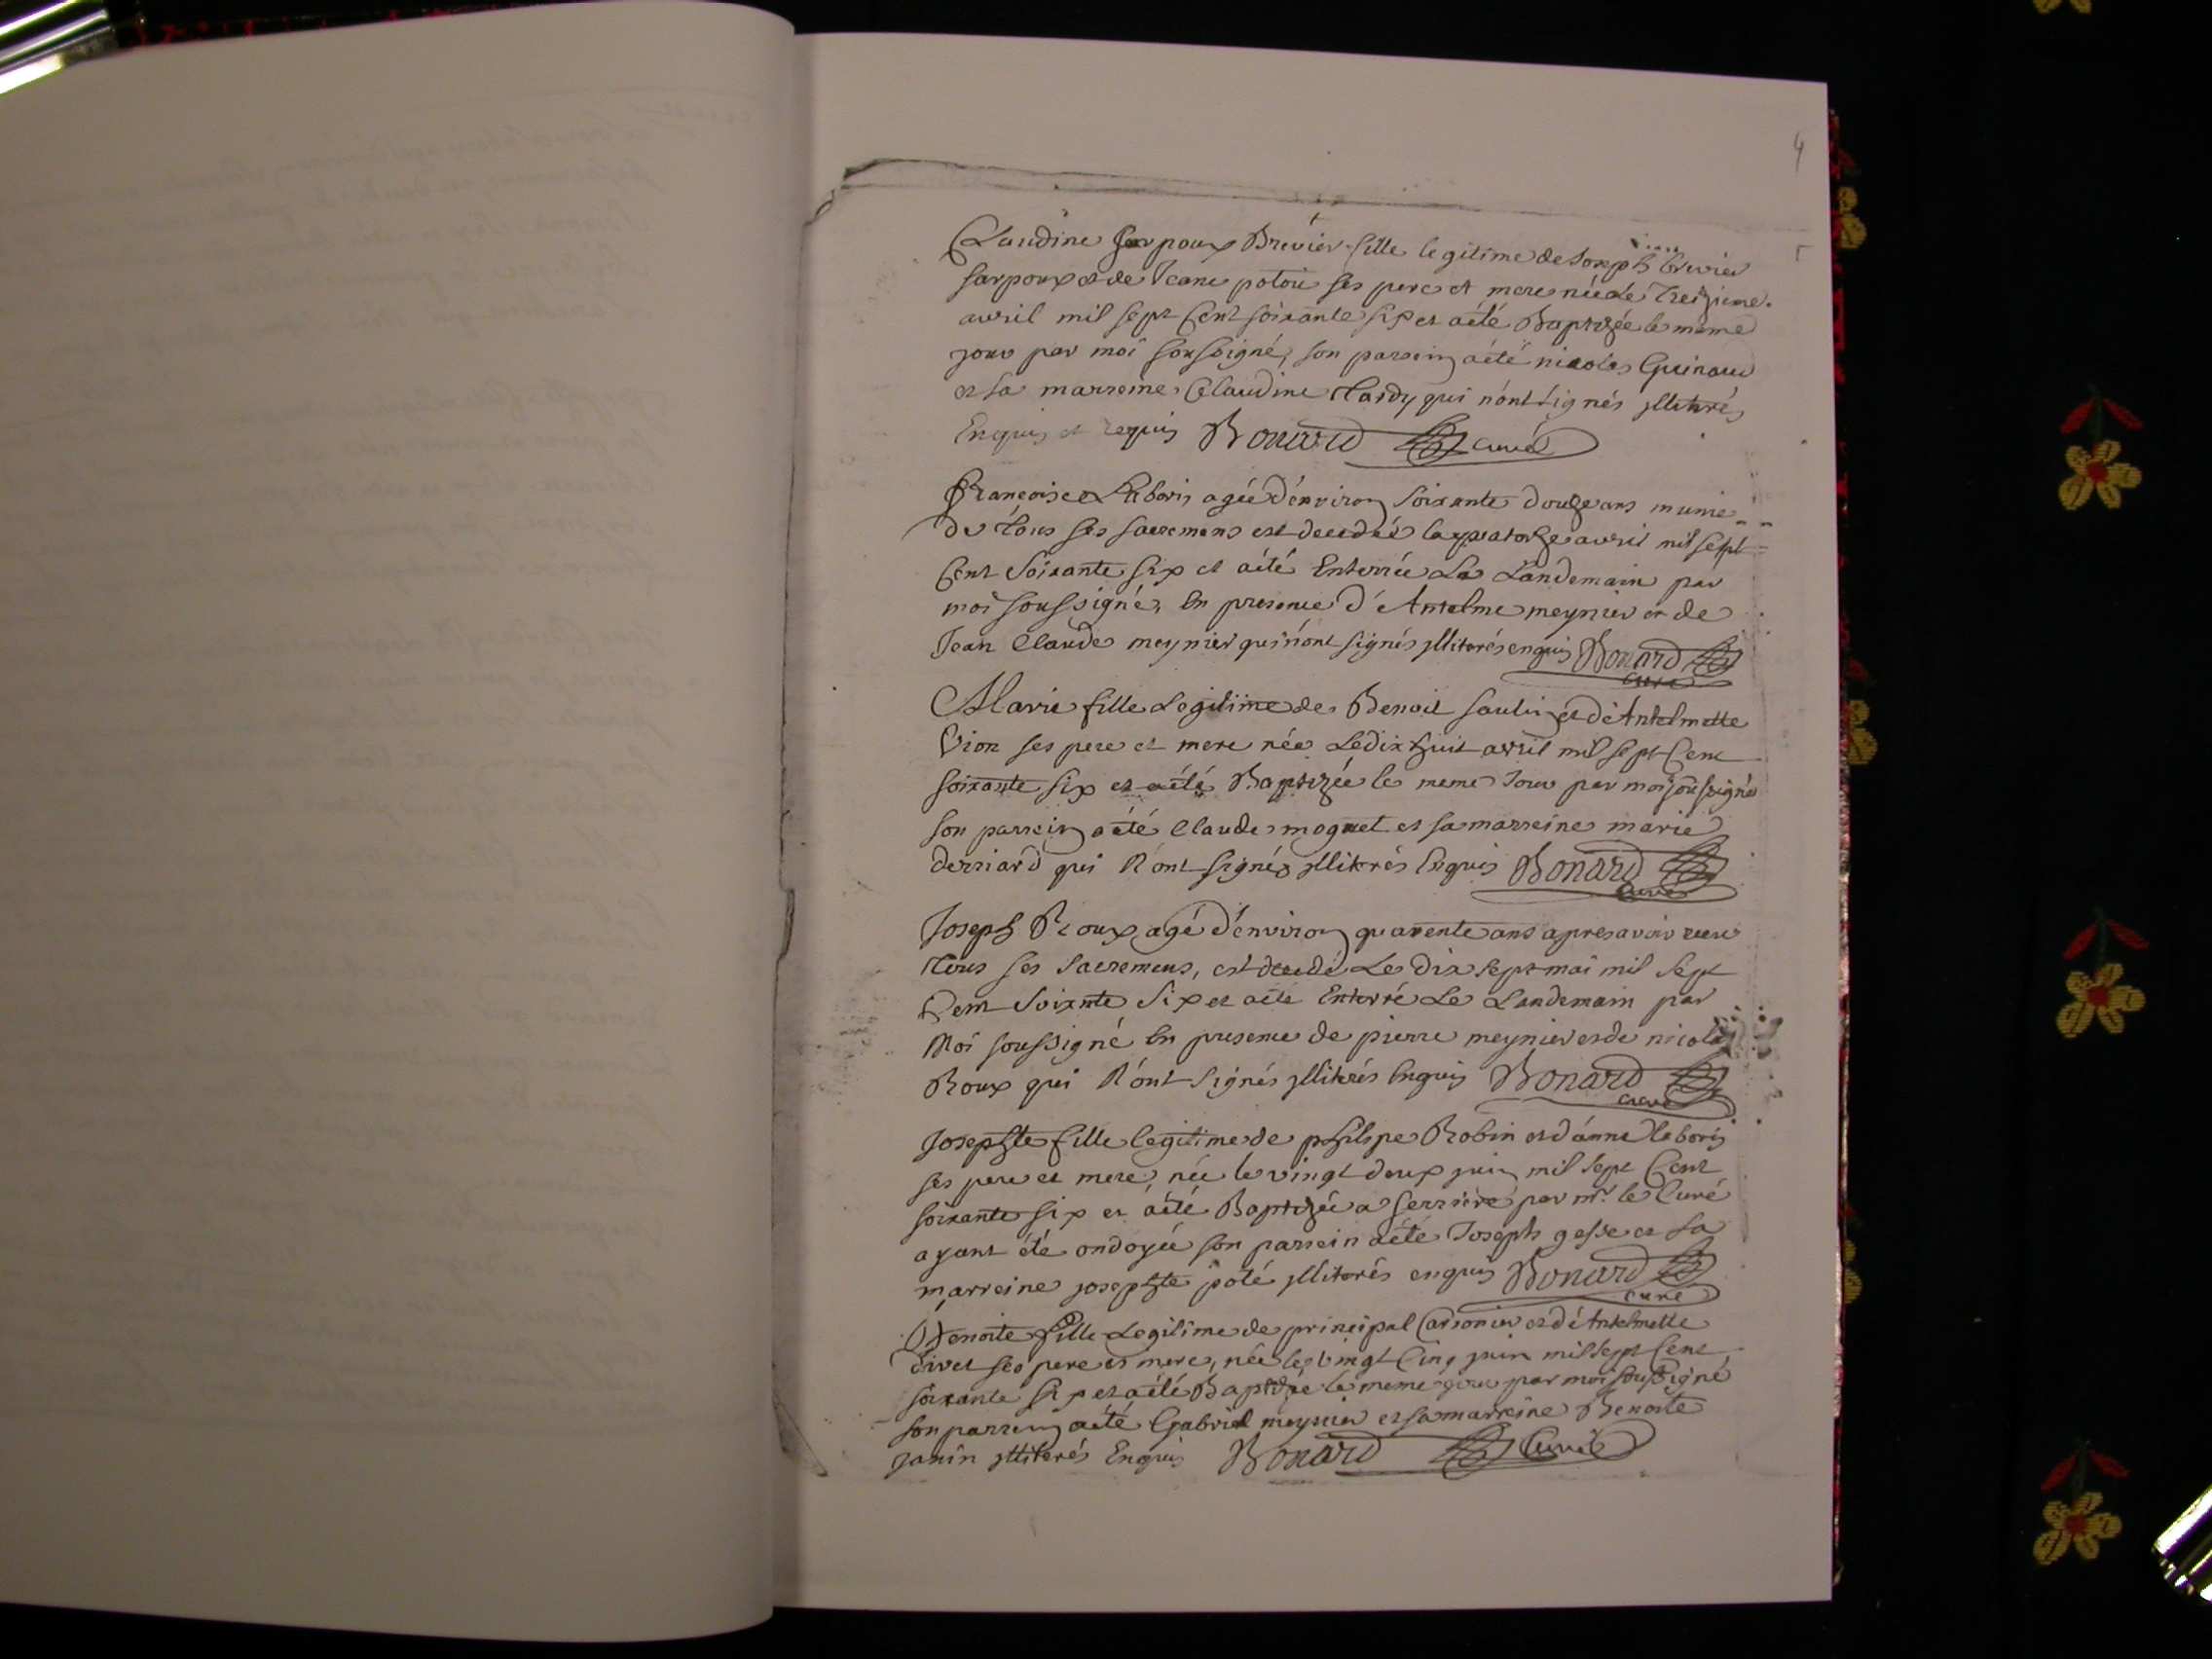 4
Claudine Sarpoux Brevier fille legitime de Joseph brevier
sarpoux et de Jeane potoii ses pere et mere née le treizieme
avril mil sept Cent soixante six et a été Baptizée le meme
jour par moi soussigné, son parrein a été nicolas Guinard
et sa marreine Claudine Tardy qui n'ont signés illiterés
Enquis et requis Bonard curé
Françoise Laboris agée d'environ soixante douze ans munie
de tous ses sacremens est decedée le quatorze avril mil sept
Cent soixante six et a été Enterrée Le Landemain par
moi soussigné, En presence d'Antelme meynier et de
Jean Claude meynier qui n'ont signés illiterés enquis Bonard
curé
Marie fille Legitime de Benoit saulin et d'Antelmette
Vion ses pere et mere née Le dix huit avril mil sept Cent
soixante six et a été Baptizée le meme Jour par moi soussigné
son parrein a été Claude moguet et sa marreine marie
derriard qui N'ont signés illiterés Enquis Bonard
curé
Joseph Roux agé d'environ quarente ans apres avoir receu
Tous ses sacremens, est decedé Le dix sept mai mil sept
Cent soixante six et a été Enterré Le Landemain par
Moi soussigné En presence de pierre meynier et de nicolas
Roux qui N'ont signés illiterés Enquis Bonard
curé
Josephte fille legitime de philipe Robin et d'anne laboris
ses pere et mere, née le vingt deux juin mil sept Cent
soixante six et a été Baptizée a serriere par mr. le Curé
ayant été ondoyée son parrein a été Joseph gesse et sa
marreine josephte poté illiterés enquis Bonard
curé
Benoite fille Legitime de principal Carronier et d'Antelmette
Divet ses pere et mere, née le vingt Cinq juin mil sept Cent
soixante six et a été Baptizée le meme jour par moi soussigné
son parrein a été Gabriel meynier et sa marreine Benoite
Janin illiterés Enquis Bonard Curé